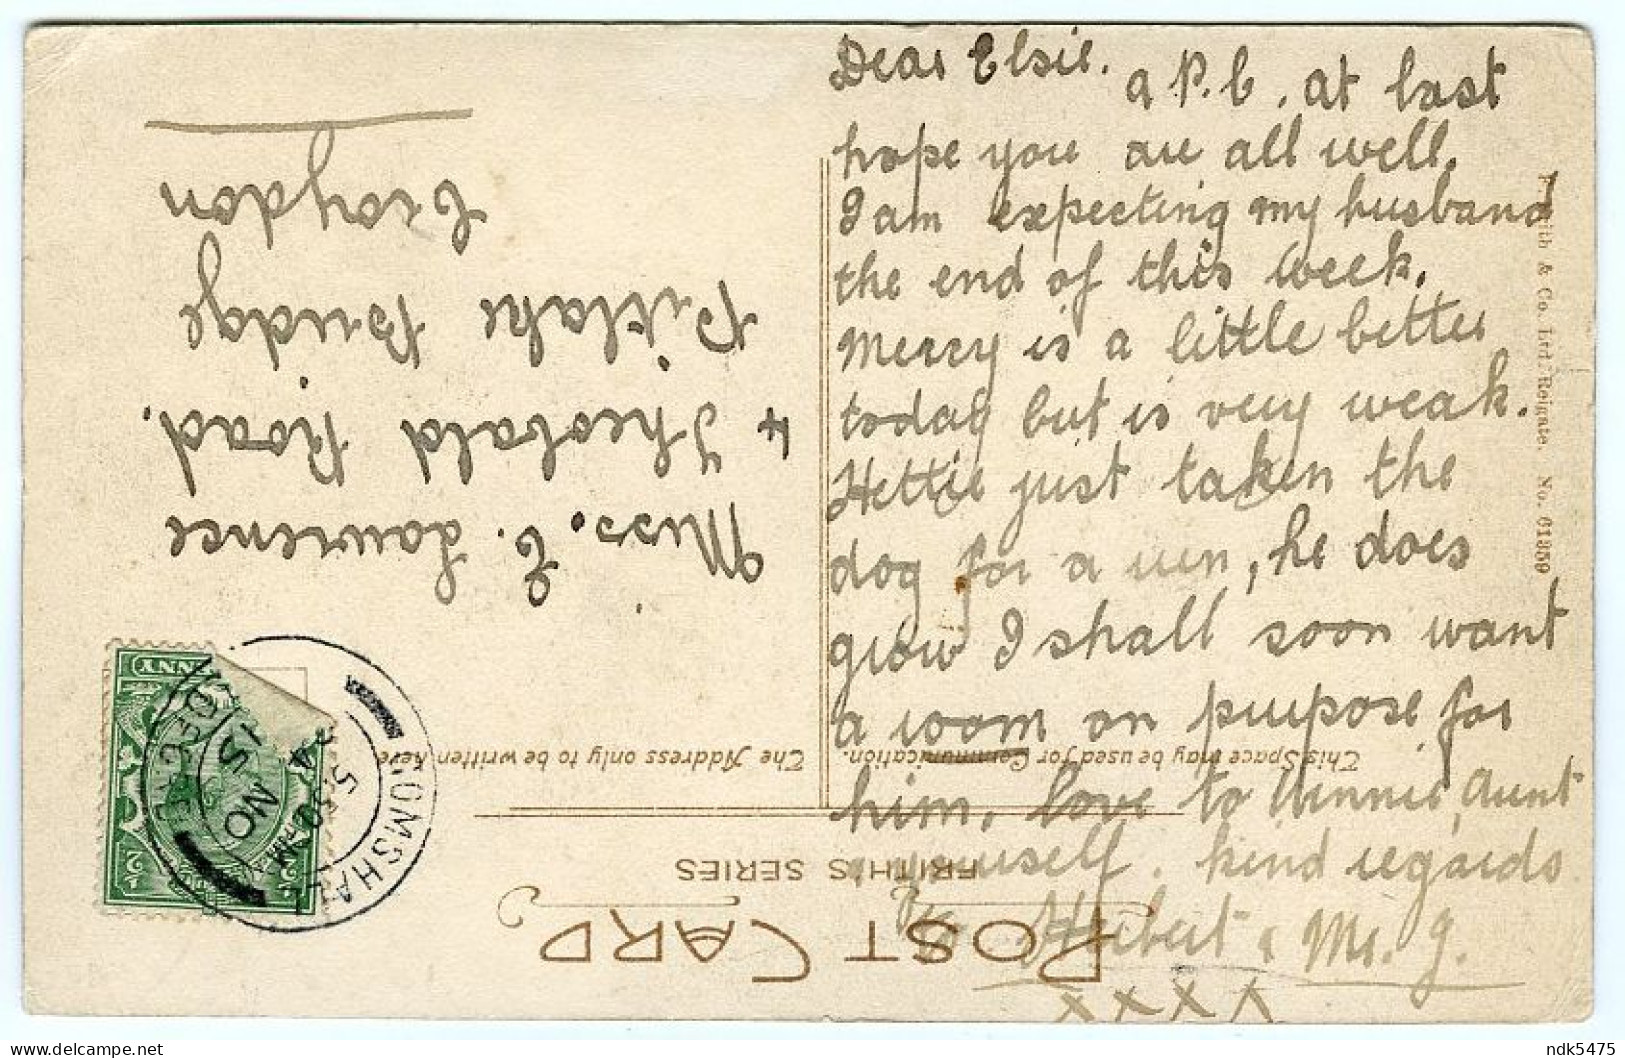 Dear Elsie.
a P.C. at last
hope you are all well.
I am expecting my husband
the end of this week.
Merry is a little better
today but is very weak.
Hettie just taken the
dog for a run, he does
grow I shall soon want
a room on purpose for
him. love to Winnie, Aunt
yourself. kind regards
to Herbert & Mr. J.
xxxx
Miss. E. Lawrence
4 Theobald Road.
Pitlake Bridge
Croydon
POST CARD
FRITH'S SERIES
This Space may be used for Communication.
The Address only to be written here
F. Frith & Co. Ltd. Reigate. No. 61359
GOMSHALL
5.30 PM
NO
15
ndk5475